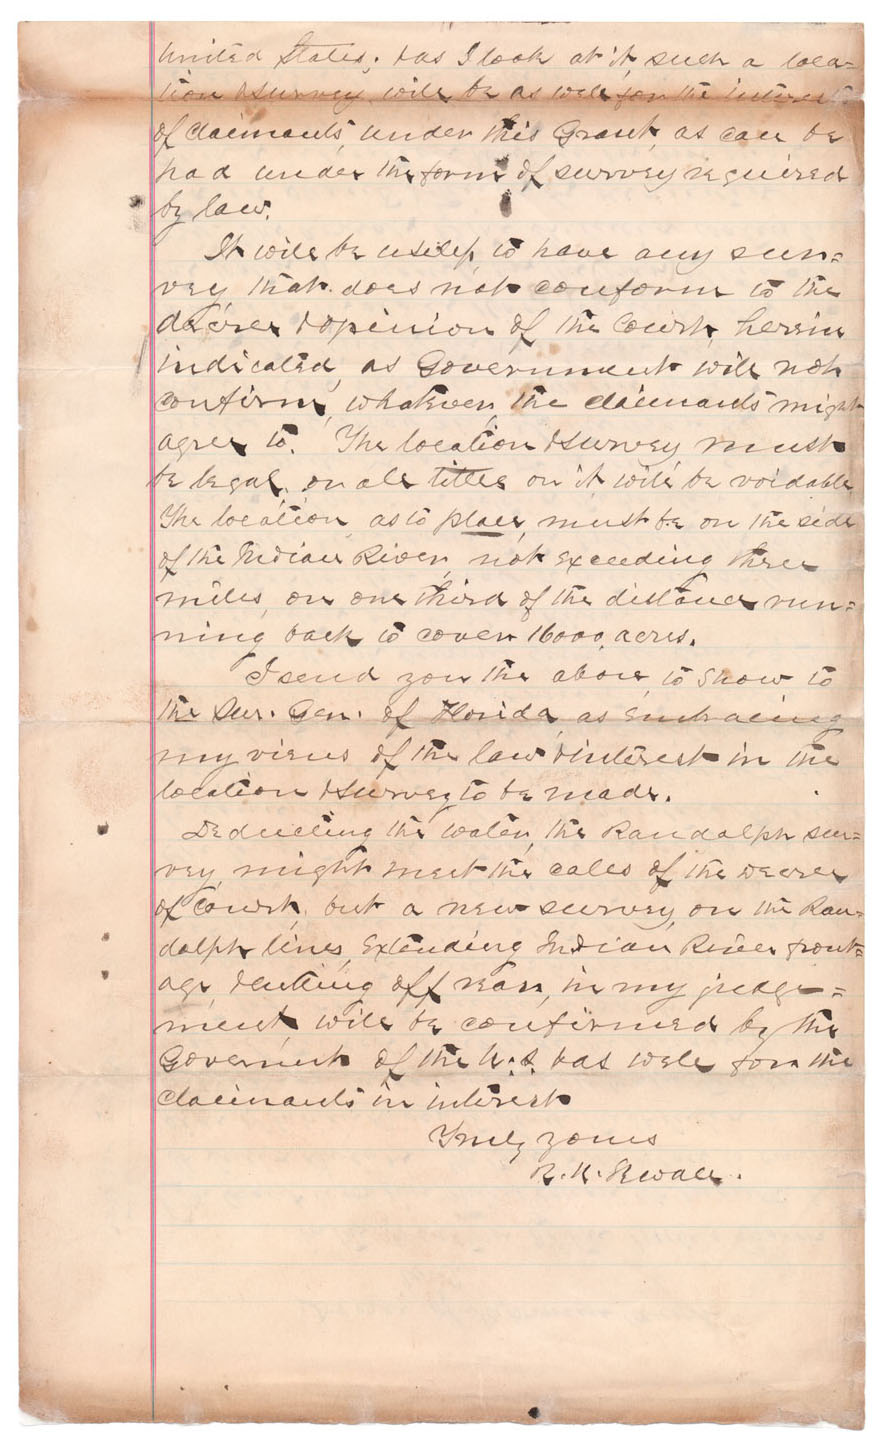 United States; & as I look at it, such a loca=
tion & survey will be as well for the interest
of claimants, under this Grant, as can be
had under the form of survey required
by law.
It will be useless, to have any sur=
vey that does not conform to the
decree & opinion of the Court, herein
indicated, as Government will not
confirm, whatever, the claimants might
agree to. The location & survey must
be legal, or all titles on it, will be voidable
The location, as to place, must be on the side
of the Indian River, not exceeding three
miles, or one third of the distance run=
ning back to cover 16000, acres.
I send you the above, to show to
the Sur. Gen. of Florida, as Embracing
my views of the law & interest in the
location & survey to be made.
Deducting the water, the Randolph sur=
vey, might meet the calls of the Decree
of Court, but a new survey, on the Ran=
dolph lines, Extending Indian River front=
age & cutting off rear, in my judge=
ment will be confirmed by the
Government of the U.S. & as well for the
claimants in interest
Truly yours
R. K. Sewall.